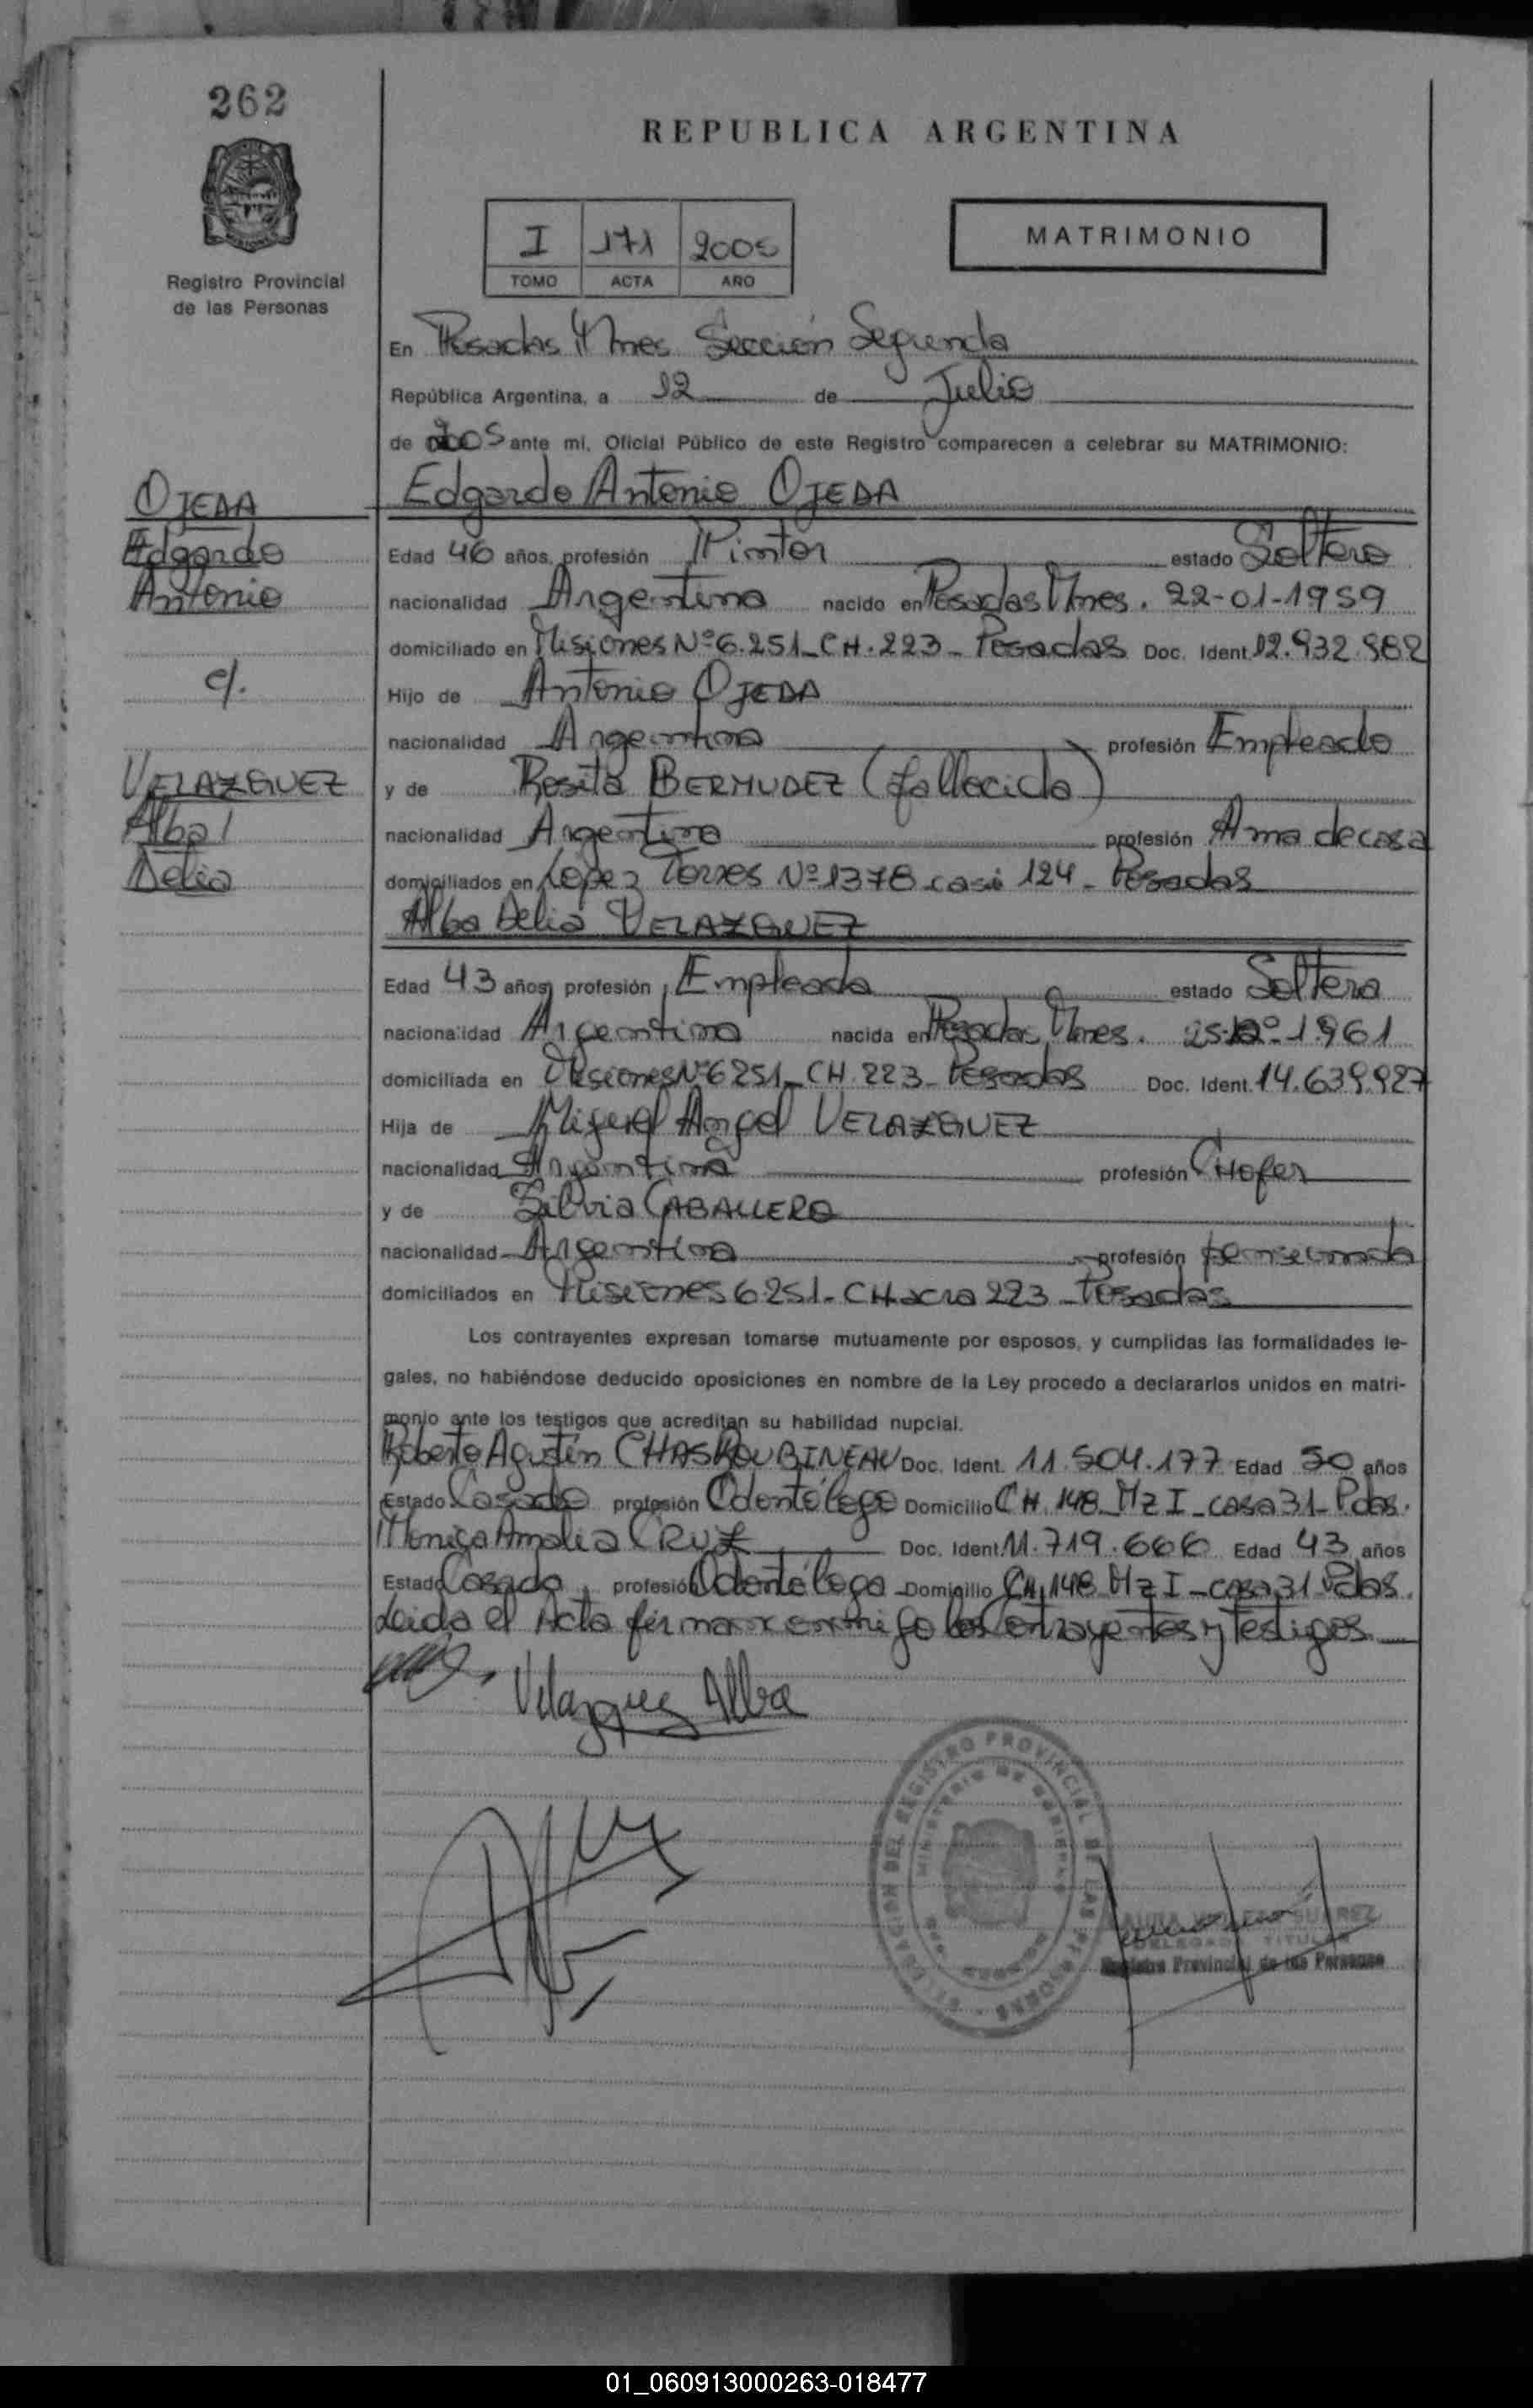 262
REPUBLICA ARGENTINA
Registro Provincial
de las Personas
I 171 2005
TOMO ACTA AÑO
MATRIMONIO
En Posadas Mnes. Sección Segunda
República Argentina, a 12 de Julio
de 2005 ante mí, Oficial Público de este Registro comparecen a celebrar su MATRIMONIO:
OJEDA
Edgardo
Antonio
c/.
VELAZQUEZ
Alba
Delia
Edgardo Antonio OJEDA
Edad 46 años, profesión Pintor estado Soltero
nacionalidad Argentina nacido en Posadas Mnes. 22-01-1959
domiciliado en Misiones Nº 6.251_CH.223_Posadas Doc. Ident. 12.932.982
Hijo de Antonio OJEDA
nacionalidad Argentina profesión Empleado
y de Rosita BERMUDEZ (fallecida)
nacionalidad Argentina profesión Ama de casa
domiciliados en López Torres Nº 1378 casi 124_Posadas
Alba Delia VELAZQUEZ
Edad 43 años, profesión Empleada estado Soltera
nacionalidad Argentina nacida en Posadas, Mnes. 1.961
domiciliada en Misiones Nº 6251_CH.223_Posadas Doc. Ident. 14.639.927
Hija de Miguel Angel VELAZQUEZ
nacionalidad Argentina profesión CHofer
y de Silvia CABALLERO
nacionalidad Argentina profesión pensionada
domiciliados en Misiones 6251_CHacra 223_Posadas
Los contrayentes expresan tomarse mutuamente por esposos, y cumplidas las formalidades le-
gales, no habiéndose deducido oposiciones en nombre de la Ley procedo a declararlos unidos en matri-
monio ante los testigos que acreditan su habilidad nupcial.
Roberto Agustín CHAS ROUBINEAU Doc. Ident. 11.504.177 Edad 50 años
Estado Casado profesión Odontólogo Domicilio CH.148_Mz I_casa 31_Pdas.
Mónica Amalia CRUZ Doc. Ident. 11.719.666 Edad 43 años
Estado Casada, profesión Odontóloga Domicilio CH.148 Mz I_casa 31 Pdas.
Leida el Acta firman conmigo los Contrayentes y testigos
Velazquez Alba
REGISTRO PROVINCIAL DE LAS PERSONAS
MINISTERIO DE GOBIERNO
SUAREZ
DELEGADA TITULAR
Registro Provincial de las Personas
01_060913000263-018477